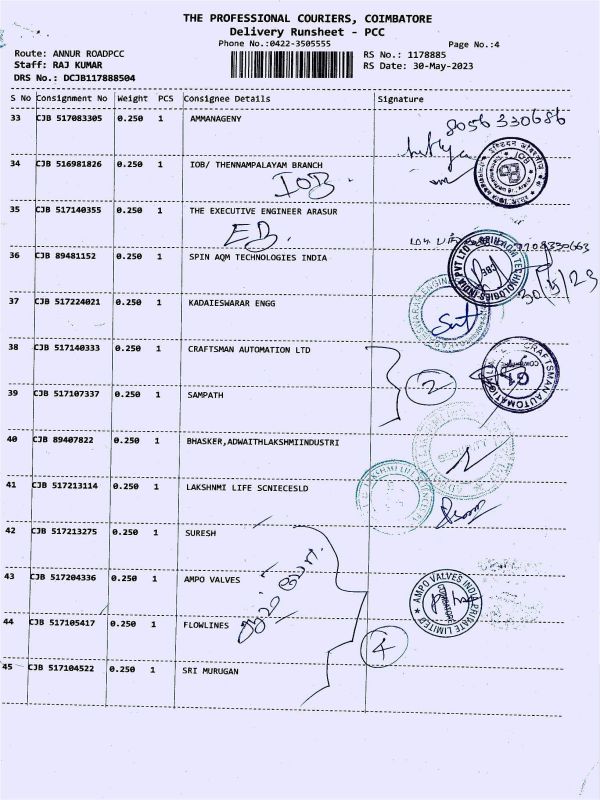 THE PROFESSIONAL COURIERS, COIMBATORE
Delivery Runsheet - PCC
Phone No.:0422-3505555
Page No.:4
Route: ANNUR ROADPCC
RS No.: 1178885
Staff: RAJ KUMAR
RS Date: 30-May-2023
DRS No.: DCJB117888504
S No Consignment No Weight PCS Consignee Details Signature
33 CJB 517083305 0.250 1 AMMANAGENY
8056330686
34 CJB 516981826 0.250 1 IOB/ THENNAMPALAYAM BRANCH
IOB
35 CJB 517140355 0.250 1 THE EXECUTIVE ENGINEER ARASUR
36 CJB 89481152 0.250 1 SPIN AQM TECHNOLOGIES INDIA
30/5/23
37 CJB 517224021 0.250 1 KADAIESWARAR ENGG
38 CJB 517140333 0.250 1 CRAFTSMAN AUTOMATION LTD
CRAFTSMAN AUTOMATION
2
39 CJB 517107337 0.250 1 SAMPATH
40 CJB 89407822 0.250 1 BHASKER,ADWAITHLAKSHMIINDUSTRI
SECURITY
41 CJB 517213114 0.250 1 LAKSHNMI LIFE SCNIECESLD
42 CJB 517213275 0.250 1 SURESH
43 CJB 517204336 0.250 1 AMPO VALVES
AMPO VALVES INDIA PRIVATE LIMITED
COIMBATORE
44 CJB 517105417 0.250 1 FLOWLINES
4
45 CJB 517104522 0.250 1 SRI MURUGAN